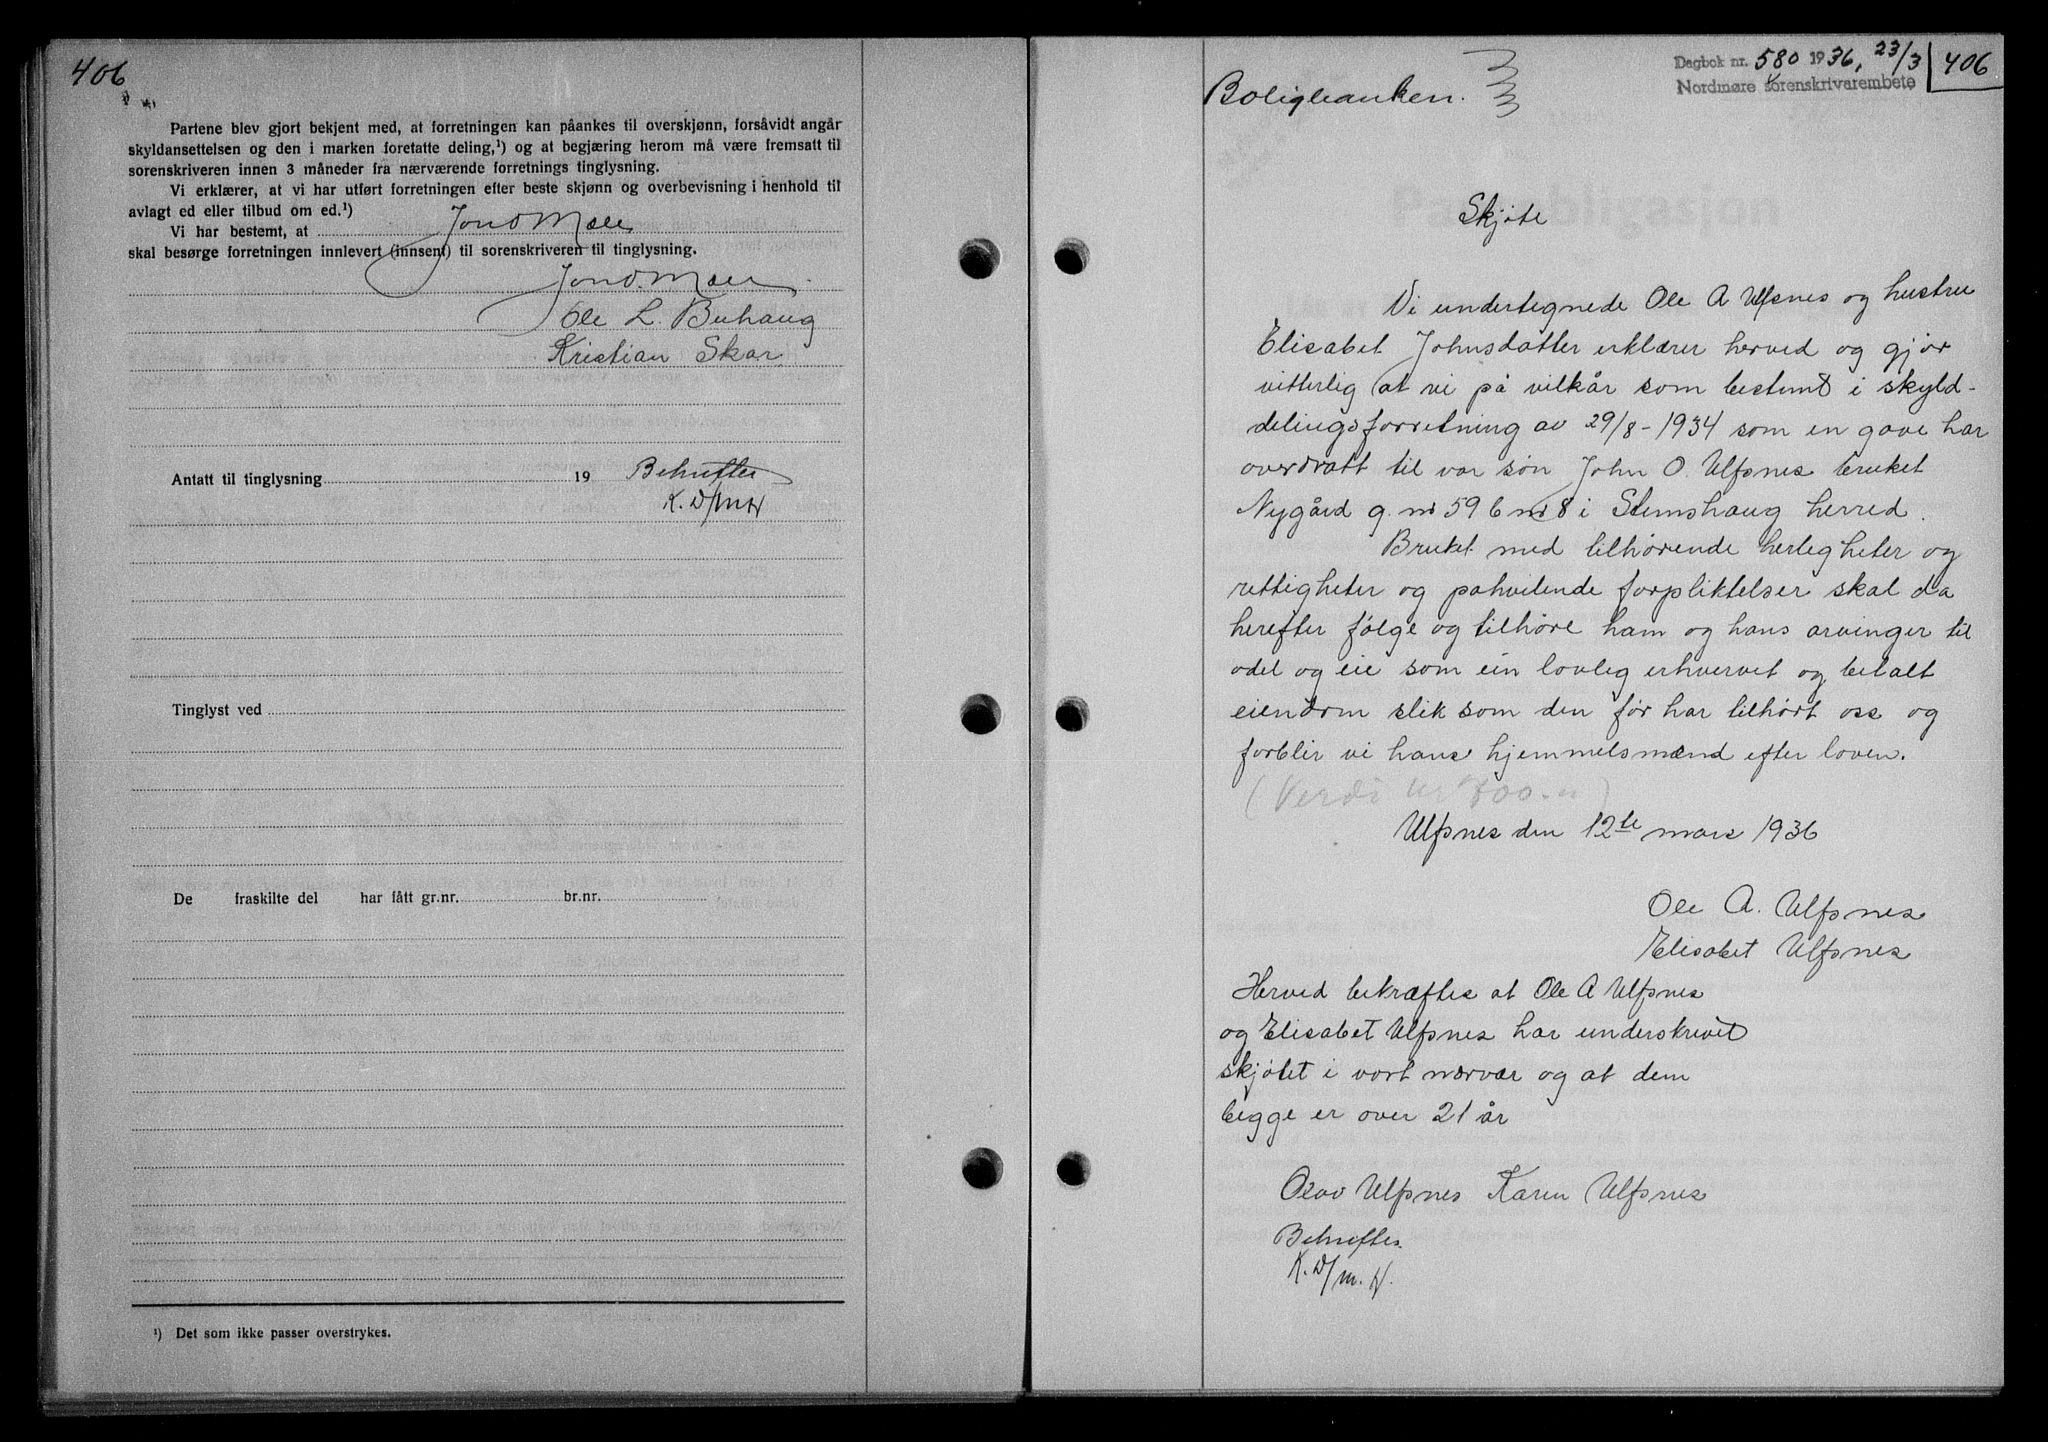 406
Partene blev gjort bekjent med, at forretningen kan påankes til overskjønn, forsåvidt angår
skyldansettelsen og den i marken foretatte deling,¹) og at begjæring herom må være fremsatt til
sorenskriveren innen 3 måneder fra nærværende forretnings tinglysning.
Vi erklærer, at vi har utført forretningen efter beste skjønn og overbevisning i henhold til
avlagt ed eller tilbud om ed.¹)
Vi har bestemt, at Jon O Moen
skal besørge forretningen innlevert (innsent) til sorenskriveren til tinglysning.
Jon O. Moen
Ole L. Buhaug
Kristian Skar
Antatt til tinglysning 19 Bekreftes
K. D/M H
Tinglyst ved
De fraskilte del har fått gr.nr. br.nr.
¹) Det som ikke passer overstrykes.
Dagbok nr. 580 1936, 23/3 406
Nordmøre sorenskrivarembete
Boligbanken.
Skjøte
Vi undertegnede Ole A Ulfsnes og hustru
Elisabet Johnsdatter erklærer herved og gjør
vitterlig at vi på vilkår som bestemt i skyld-
delingsforretning av 29/8-1934 som en gave har
overdratt til vor søn John O. Ulfsnes bruket
Nygård g. nr 59 b nr 8 i Stemshaug herred.
Bruket med tilhørende herligheter og
rettigheter og påhvilende forpliktelser skal da
herefter følge og tilhøre ham og hans arvinger til
odel og eie som ein lovlig erhvervet og betalt
eiendom slik som den før har tilhørt oss og
forblir vi hans hjemmelsmænd efter loven.
(Verdi kr 800.-)
Ulfsnes den 12te mars 1936
Ole A. Ulfsnes
Elisabet Ulfsnes
Herved bekræftes at Ole A Ulfsnes
og Elisabet Ulfsnes har underskrevet
skjøtet i vort nærvær og at dem
begge er over 21 år
Olav Ulfsnes Karen Ulfsnes
Bekreftes
K. D/M. H.